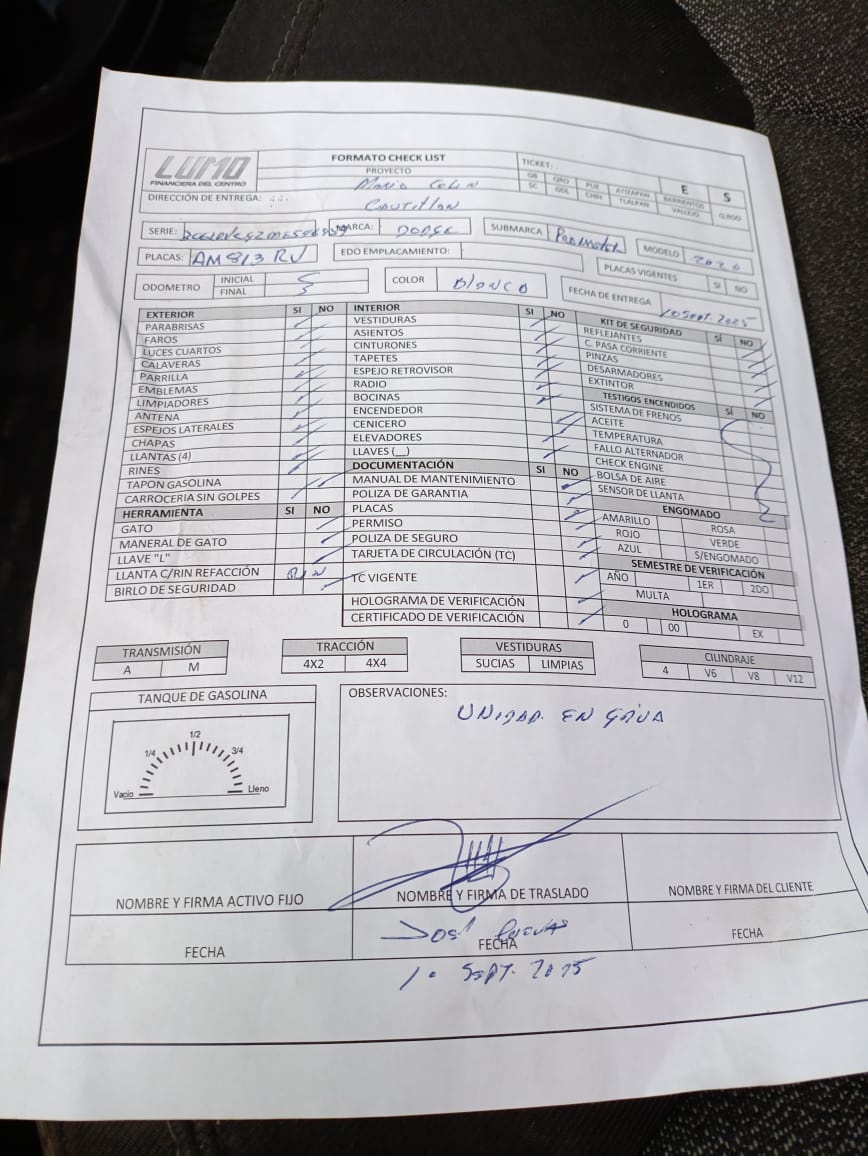 LUMO
FINANCIERA DEL CENTRO
FORMATO CHECK LIST
PROYECTO
Mario Colin
TICKET:
GB QRO PUE ATIZAPAN BARRIENTOS E S
SC GDL CHIH TLALPAN VALLEJO Q.ROO
DIRECCIÓN DE ENTREGA:
Cautitlan
SERIE:
MARCA: DODGE
SUBMARCA
MODELO 2020
PLACAS: AM 813 RV
EDO EMPLACAMIENTO:
PLACAS VIGENTES SI NO
ODOMETRO INICIAL
FINAL
COLOR Blanco
FECHA DE ENTREGA 10 Sept. 2025
EXTERIOR SI NO
PARABRISAS
FAROS
LUCES CUARTOS
CALAVERAS
PARRILLA
EMBLEMAS
LIMPIADORES
ANTENA
ESPEJOS LATERALES
CHAPAS
LLANTAS (4)
RINES
TAPON GASOLINA
CARROCERIA SIN GOLPES
HERRAMIENTA SI NO
GATO
MANERAL DE GATO
LLAVE "L"
LLANTA C/RIN REFACCIÓN RIN
BIRLO DE SEGURIDAD
INTERIOR SI NO
VESTIDURAS
ASIENTOS
CINTURONES
TAPETES
ESPEJO RETROVISOR
RADIO
BOCINAS
ENCENDEDOR
CENICERO
ELEVADORES
LLAVES (__)
DOCUMENTACIÓN SI NO
MANUAL DE MANTENIMIENTO
POLIZA DE GARANTIA
PLACAS
PERMISO
POLIZA DE SEGURO
TARJETA DE CIRCULACIÓN (TC)
TC VIGENTE
HOLOGRAMA DE VERIFICACIÓN
CERTIFICADO DE VERIFICACIÓN
KIT DE SEGURIDAD SI NO
REFLEJANTES
C. PASA CORRIENTE
PINZAS
DESARMADORES
EXTINTOR
TESTIGOS ENCENDIDOS SI NO
SISTEMA DE FRENOS
ACEITE
TEMPERATURA
FALLO ALTERNADOR
CHECK ENGINE
BOLSA DE AIRE
SENSOR DE LLANTA
ENGOMADO
AMARILLO ROSA
ROJO VERDE
AZUL S/ENGOMADO
SEMESTRE DE VERIFICACIÓN
AÑO 1ER 2DO
MULTA
HOLOGRAMA
0 00 EX
TRANSMISIÓN
A M
TRACCIÓN
4X2 4X4
VESTIDURAS
SUCIAS LIMPIAS
CILINDRAJE
4 V6 V8 V12
TANQUE DE GASOLINA
1/4 1/2 3/4
Vacio Lleno
OBSERVACIONES:
UNIDAD EN GRUA
NOMBRE Y FIRMA ACTIVO FIJO
NOMBRE Y FIRMA DE TRASLADO
NOMBRE Y FIRMA DEL CLIENTE
FECHA
José
FECHA
FECHA
10 SEPT. 2025